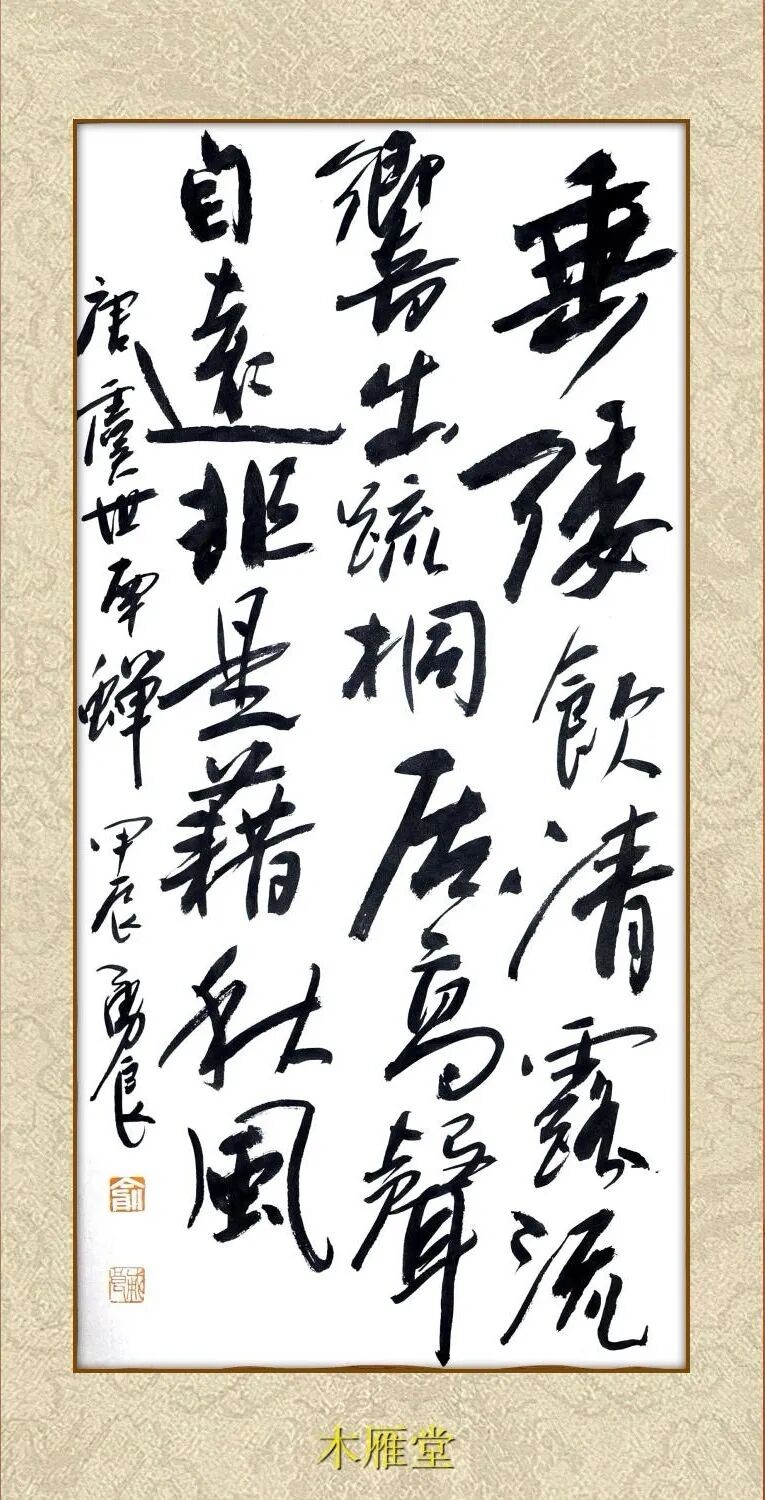 垂緌飲清露流
響出疏桐居高聲
自遠非是藉秋風
唐虞世南蟬 甲辰 勇良
俞
木雁堂